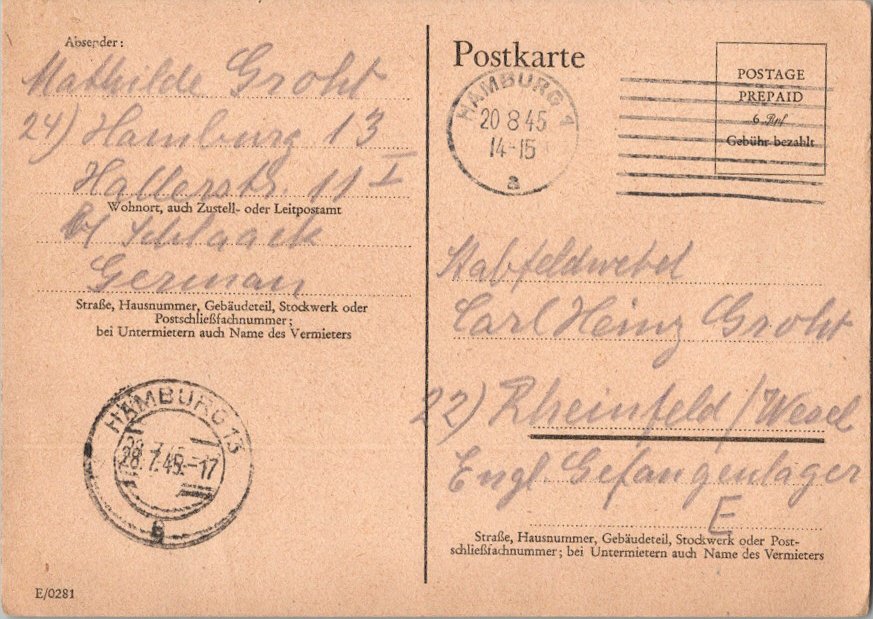 Absender:
Mathilde Groht
24) Hamburg 13
Hallerstr. 11 I
Wohnort, auch Zustell- oder Leitpostamt
b/ Schlaack
German
Straße, Hausnummer, Gebäudeteil, Stockwerk oder
Postschließfachnummer;
bei Untermietern auch Name des Vermieters
HAMBURG 13
28.7.45.-17
g
E/0281
Postkarte
HAMBURG 1
20 8 45
14-15
a
POSTAGE
PREPAID
6 Rpf
Gebühr bezahlt
Stabfeldwebel
Carl Heinz Groht
22) Rheinfeld/Wesel
Engl. Gefangenlager
E
Straße, Hausnummer, Gebäudeteil, Stockwerk oder Post-
schließfachnummer; bei Untermietern auch Name des Vermieters